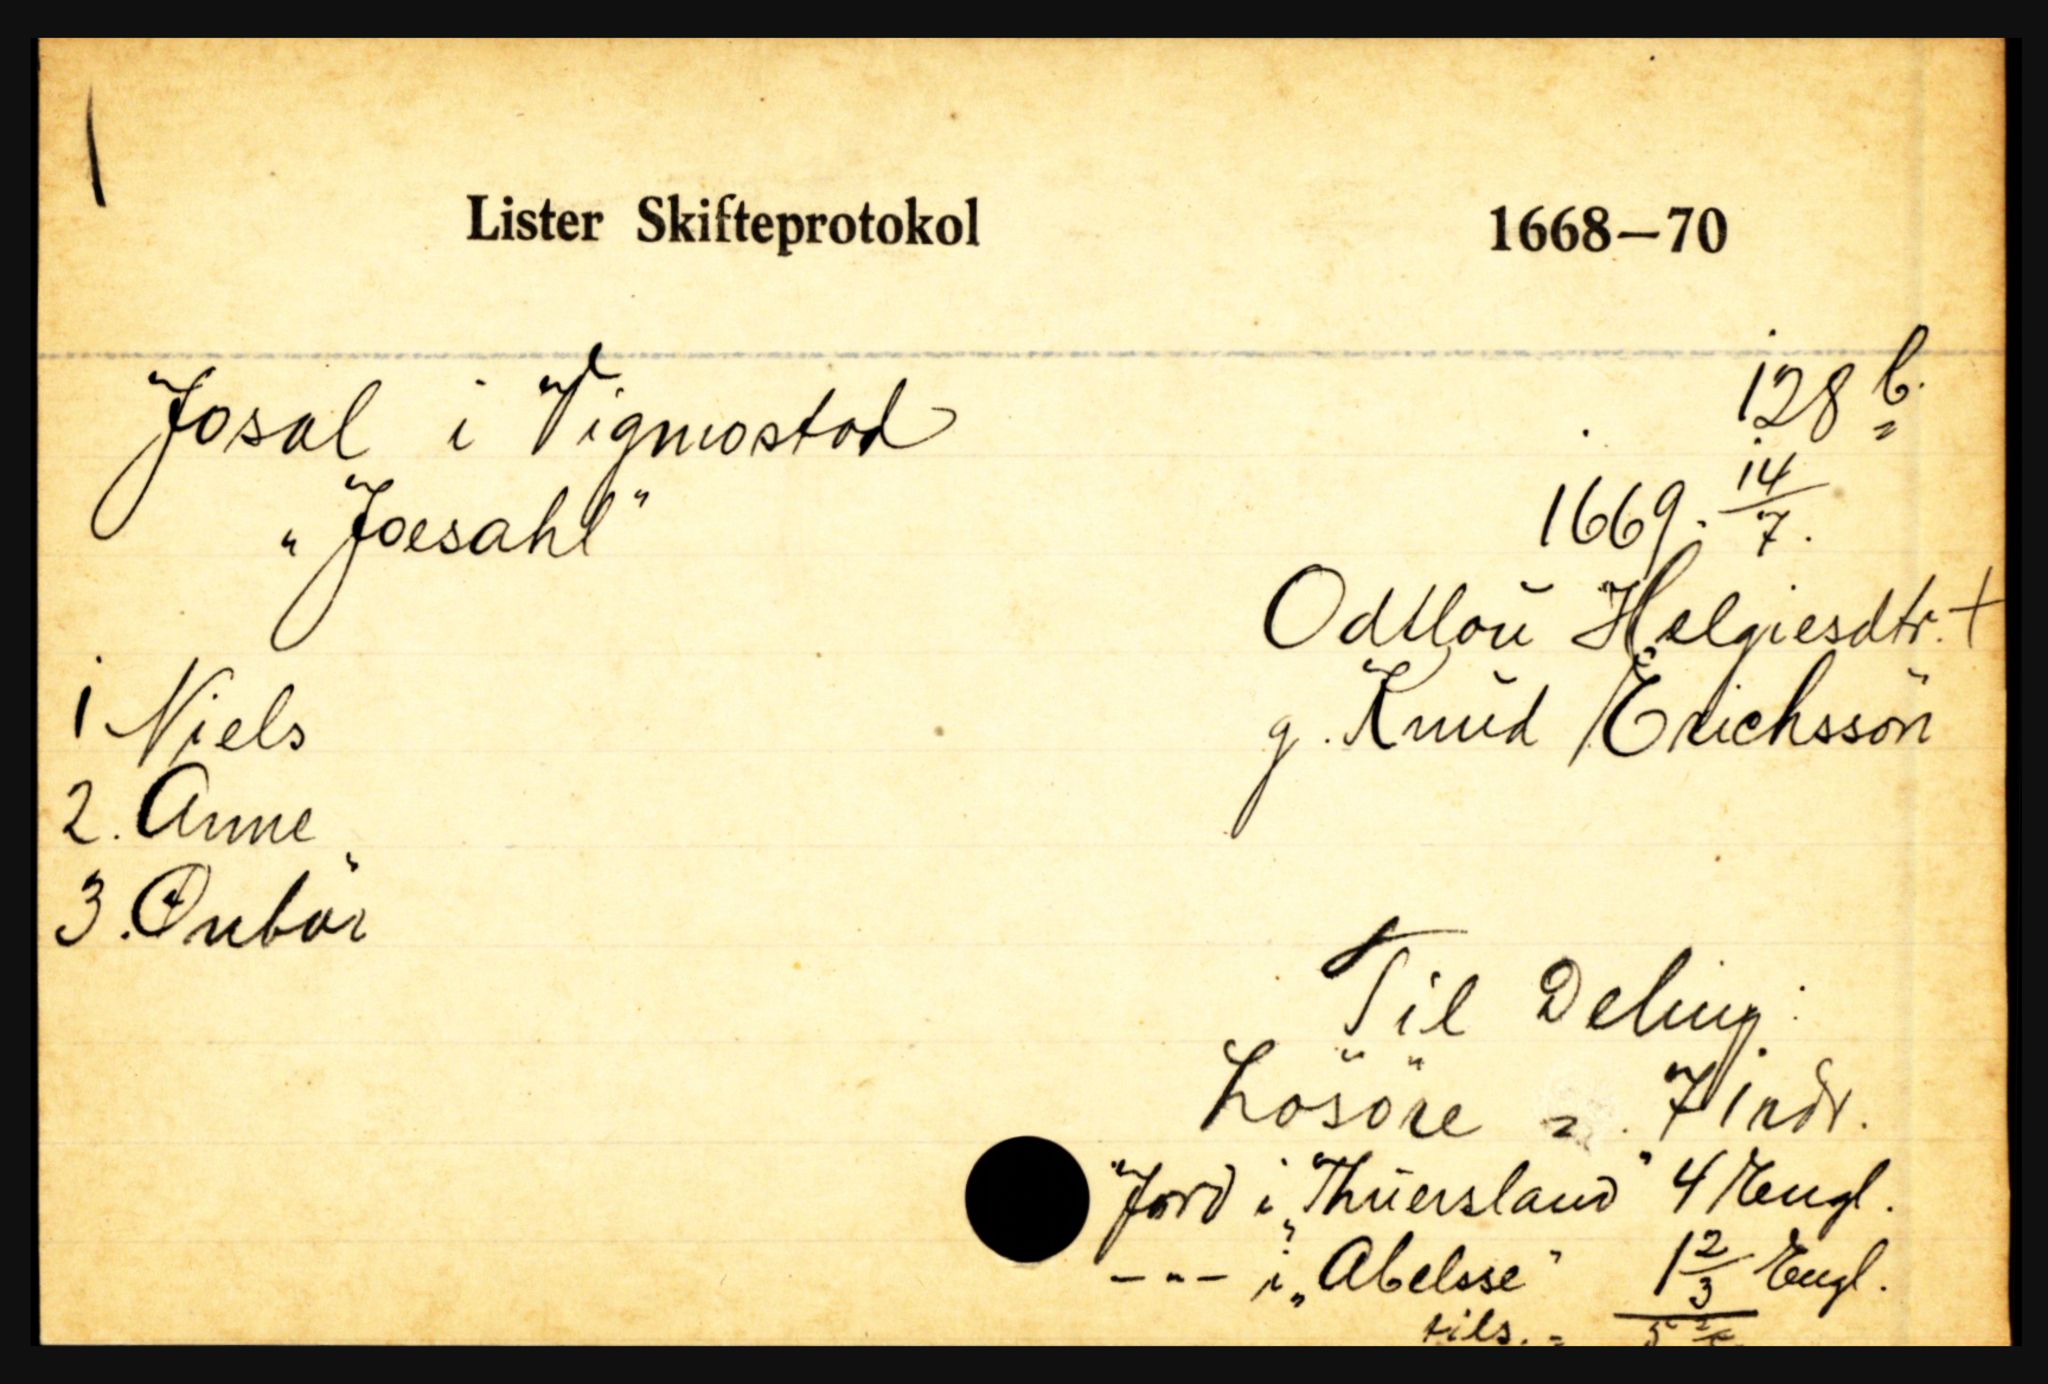 Lister Skifteprotokol 1668—70
128 b.
Josal i Vigmostad
1669. 14/7.
"Joesahl"
Odtlou Helgiesdtr. +
1 Niels
g. Knud Erichssön
2. Anne
3. Onbör
Til Deling:
Lösöre = 71 rdr.
Jord i "Thuersland" 4 Engl.
- " - i "Abelsse" 1 2/3 Engl.
tils. = 5 2/3